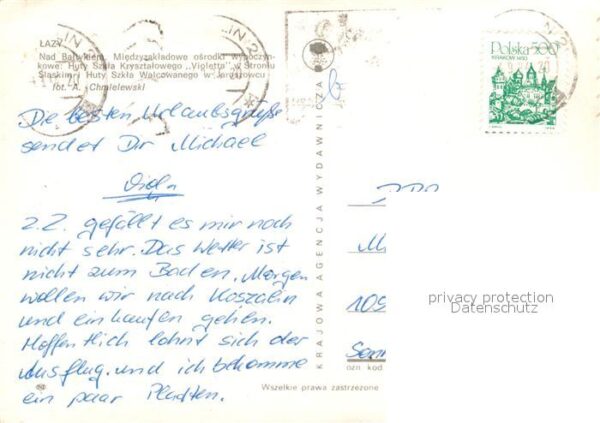 ŁAZY
Nad Bałtykiem. Międzyzakładowe ośrodki wypoczyn-
kowe: Huty Szkła Kryształowego „Violetta" w Stroniu
Śląskim i Huty Szkła Walcowanego w Jaroszowcu
fot. A. Chmielewski
Die besten Urlaubsgrüße
sendet Dir Michael
z.Z. gefällt es mir noch
nicht sehr. Das Wetter ist
nicht zum Baden. Morgen
wollen wir nach Koszalin
und einkaufen gehen.
Hoffentlich lohnt sich der
Ausflug. und ich bekomme
ein paar Platten.
KRAJOWA AGENCJA WYDAWNICZA
Polska 500
KRAKÓW 1493
DDR
M
109
ozn kod
Wszelkie prawa zastrzeżone
privacy protection
Datenschutz